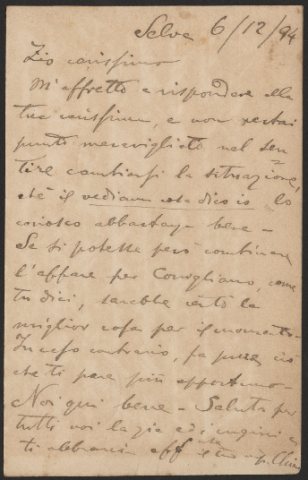 Selve 6/12/94
Zio carissimo
M'affretto a rispondere alla
tua carissima, e non restai
punto meravigliato nel sen=
tire cambiarsi la situazione,
chè il vediamo dico io lo
conosco abbastanza bene -
Se si potesse però combinare
l'affare per Conegliano, come
tu dici, sarebbe certo la
miglior cosa per il momento.
In caso contrario, fa pure ciò
che ti pare più opportuno -
Noi qui bene - Saluta per
tutti voi la zia ed i cugini e
ti abbraccio aff